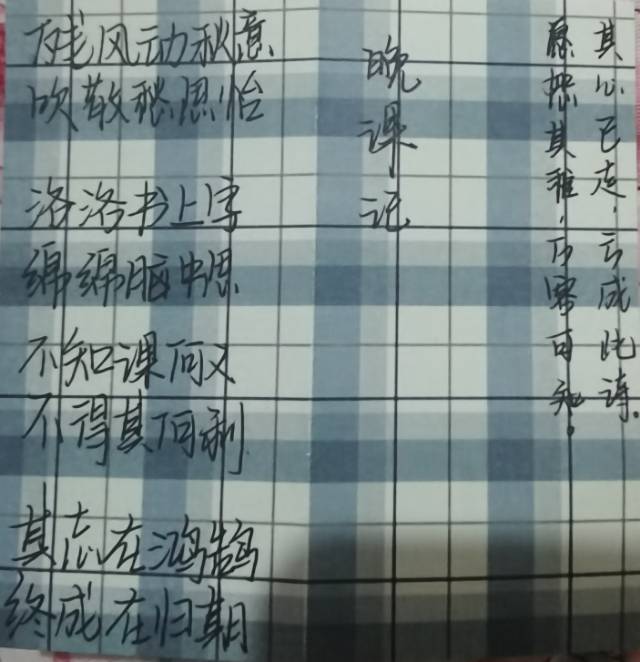 晚课记
残风动秋意
吹散愁思怡
洛洛书上字
绵绵脑中思
不知课何义
不得其何利
其志在鸿鹄
终成在归期
其心已走,亏成此诗。
愿想其雅,不寄可知。